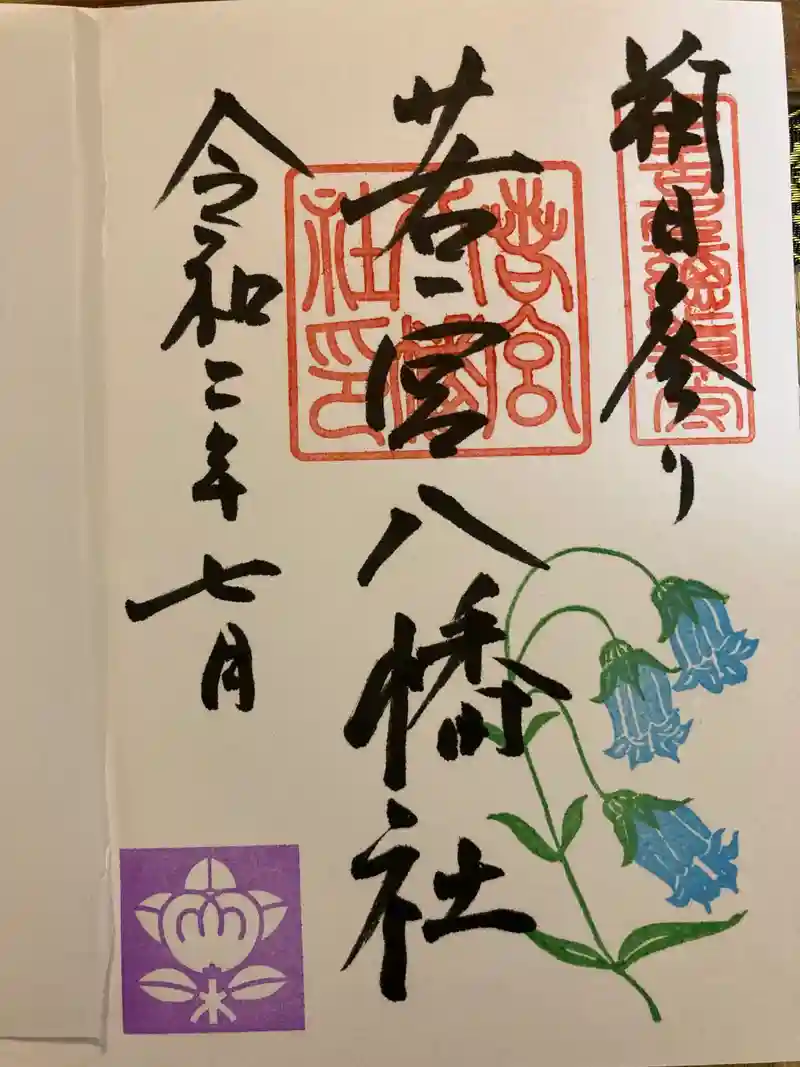 朔日参り
若宮八幡社
若宮
八幡
社印
令和二年七月